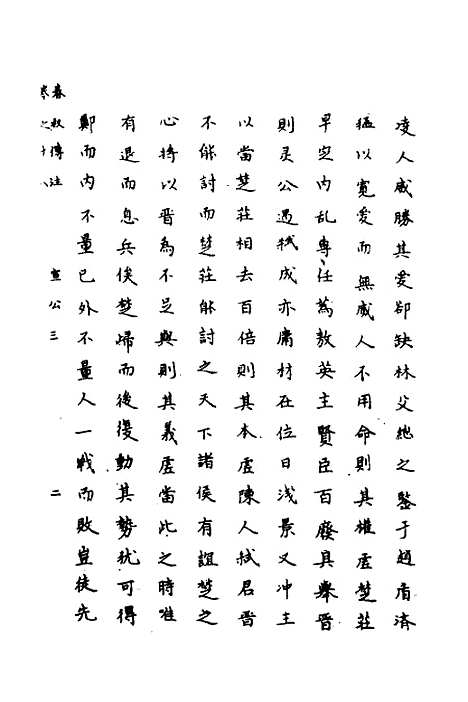 凌人威勝其爱卻缺林父絀之鍳于趙盾濟
猛以寛爱而無威人不用命則其權虚楚莊
早定内乱專任蒍敖英主賢臣百廢具舉晋
則灵公遇弑成亦庸材在位日浅景又冲主
以當楚莊相去百倍則其本虚陳人弑君晋
不能討而楚莊能討之天下諸侯有誼楚之
心将以晋為不足與則其義虚當此之時惟
有退而息兵俟楚歸而後復動其勢犹可得
鄭而内不量已外不量人一戰而敗豈徒先
春秋傳注 宣公三 二
卷之十八